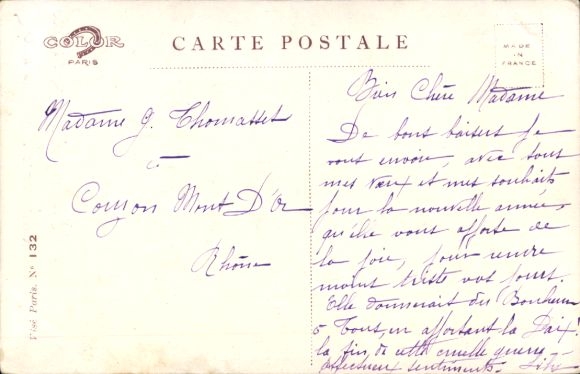 COLOR
PARIS
CARTE POSTALE
MADE
IN
FRANCE
Visé Paris. N° 132
Madame G. Thomasset
à
Couzon Mont D'Or
Rhône
Bien Chère Madame
De bons baisers je
vous envoie, avec tous
mes vœux et mes souhaits
pour la nouvelle année
qu'elle vous apporte de
la joie, pour rendre
moins triste vos jours.
Elle donnerait du Bonheur
à Tous, en apportant la Paix!
la fin de cette cruelle guerre
affectueux sentiments.